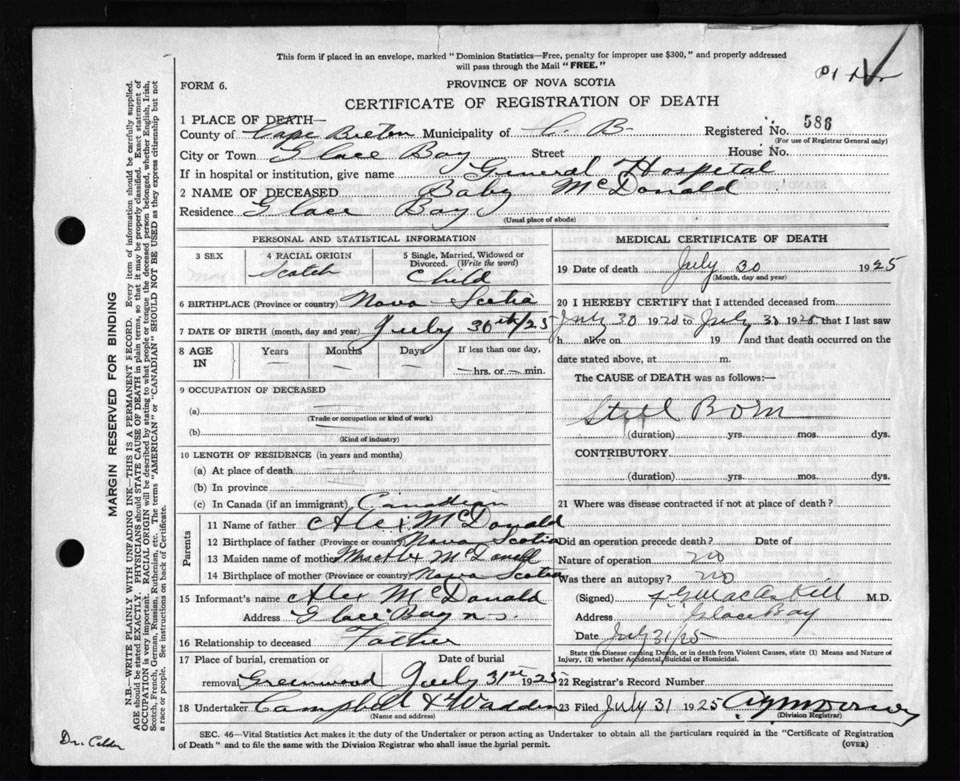 This form if placed in an envelope, marked "Dominion Statistics—Free, penalty for improper use $300," and properly addressed
will pass through the Mail "FREE."
FORM 6.
PROVINCE OF NOVA SCOTIA
CERTIFICATE OF REGISTRATION OF DEATH
1 PLACE OF DEATH—
County of Cape Breton Municipality of C. B. Registered No. 586
(For use of Registrar General only)
City or Town Glace Bay Street House No.
If in hospital or institution, give name General Hospital
2 NAME OF DECEASED Baby McDonald
Residence Glace Bay
(Usual place of abode)
PERSONAL AND STATISTICAL INFORMATION
3 SEX
4 RACIAL ORIGIN
Scotch
5 Single, Married, Widowed or
Divorced. (Write the word)
Child
6 BIRTHPLACE (Province or country) Nova Scotia
7 DATE OF BIRTH (month, day and year) July 30th/25
8 AGE IN
Years
Months
Days
If less than one day,
hrs. or min.
9 OCCUPATION OF DECEASED
(a)
(Trade or occupation or kind of work)
(b)
(Kind of industry)
10 LENGTH OF RESIDENCE (in years and months)
(a) At place of death
(b) In province
(c) In Canada (if an immigrant) Canadian
Parents
11 Name of father Alex McDonald
12 Birthplace of father (Province or country) Nova Scotia
13 Maiden name of mother
14 Birthplace of mother (Province or country) Nova Scotia
15 Informant's name Alex McDonald
Address Glace Bay N.S.
16 Relationship to deceased Father
17 Place of burial, cremation or
removal Greenwood
Date of burial
July 31st 1925
18 Undertaker Campbell & Wadden
(Name and address)
MEDICAL CERTIFICATE OF DEATH
19 Date of death July 30 1925
(Month, day and year)
20 I HEREBY CERTIFY that I attended deceased from
July 30 192 to July 30 1925 that I last saw
h alive on 19 and that death occurred on the
date stated above, at m.
The CAUSE of DEATH was as follows:—
Still Born
(duration) yrs. mos. dys.
CONTRIBUTORY
(duration) yrs. mos. dys.
21 Where was disease contracted if not at place of death?
Did an operation precede death? Date of
Nature of operation no
Was there an autopsy? no
(Signed) M.D.
Address Glace Bay
Date July 31/25
State the Disease causing Death, or in death from Violent Causes, state (1) Means and Nature of
Injury, (2) whether Accidental, Suicidal or Homicidal.
22 Registrar's Record Number
23 Filed July 31 1925
(Division Registrar)
SEC. 46—Vital Statistics Act makes it the duty of the Undertaker or person acting as Undertaker to obtain all the particulars required in the "Certificate of Registration
of Death" and to file the same with the Division Registrar who shall issue the burial permit.
(OVER)
MARGIN RESERVED FOR BINDING
N.B.—WRITE PLAINLY WITH UNFADING INK—THIS IS A PERMANENT RECORD. Every item of information should be carefully supplied.
AGE should be stated EXACTLY. PHYSICIANS should STATE CAUSE OF DEATH in plain terms, so that it may be properly classified. Exact statement of
OCCUPATION is very important. RACIAL ORIGIN will be described by stating to what people or tongue the deceased person belonged, whether English, Irish,
Scotch, French, German, Russian, Ruthenian, etc. The terms "AMERICAN" or "CANADIAN" SHOULD NOT BE USED as they express citizenship but not
a race or people. See instructions on back of Certificate.
Dr. Calder